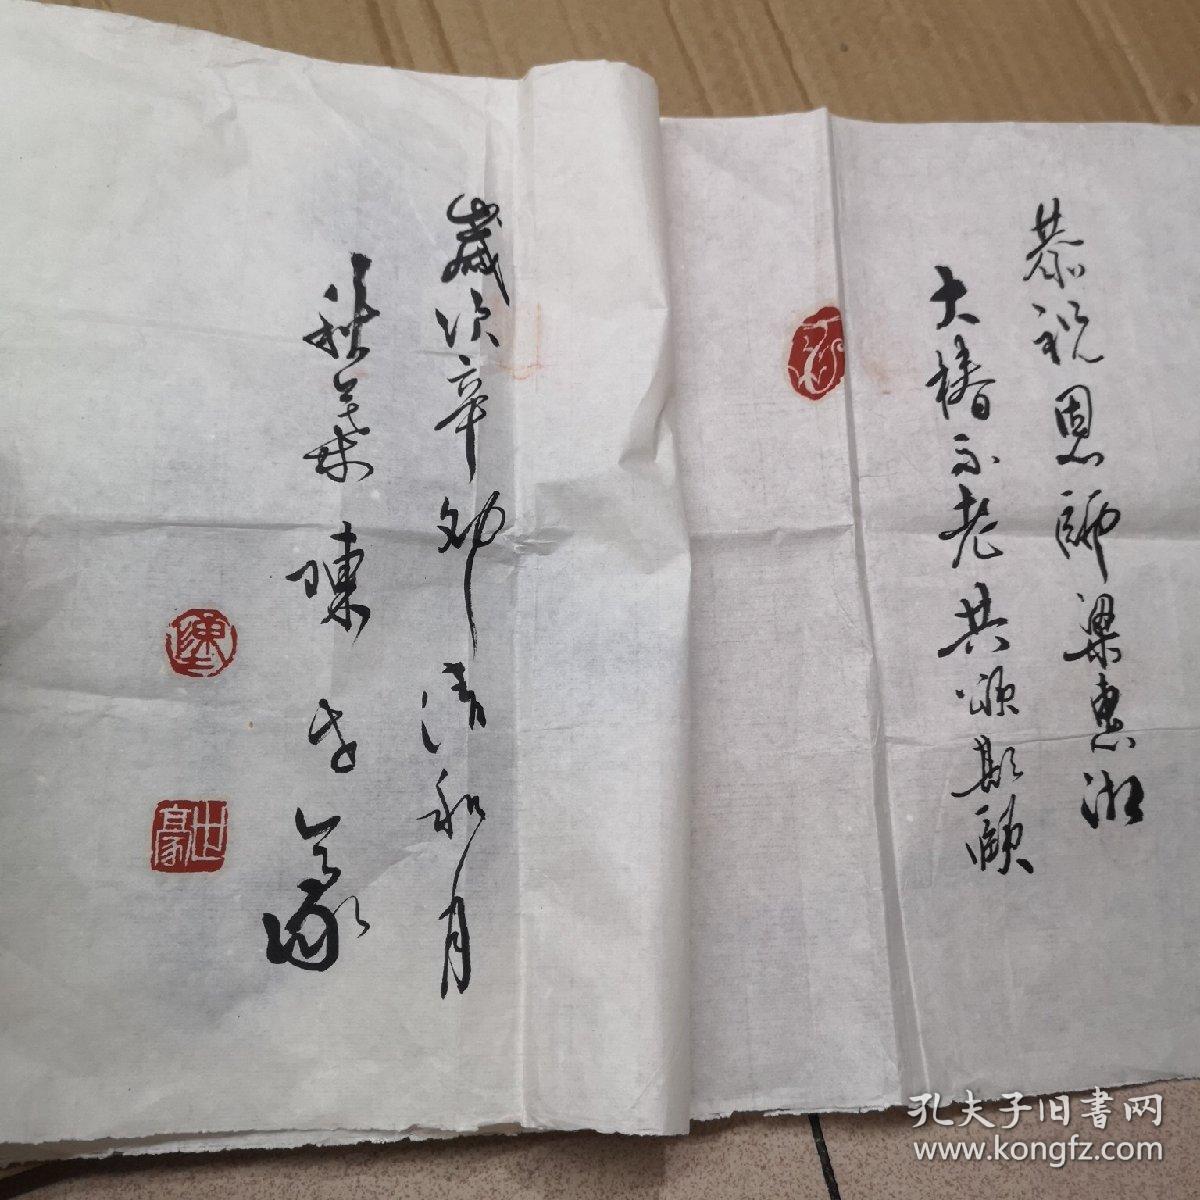 恭祝恩師梁惠湘
大椿不老共頌期頤
歲次辛卯清和月
陳世豪
陳
世豪
孔夫子旧書网
www.kongfz.com